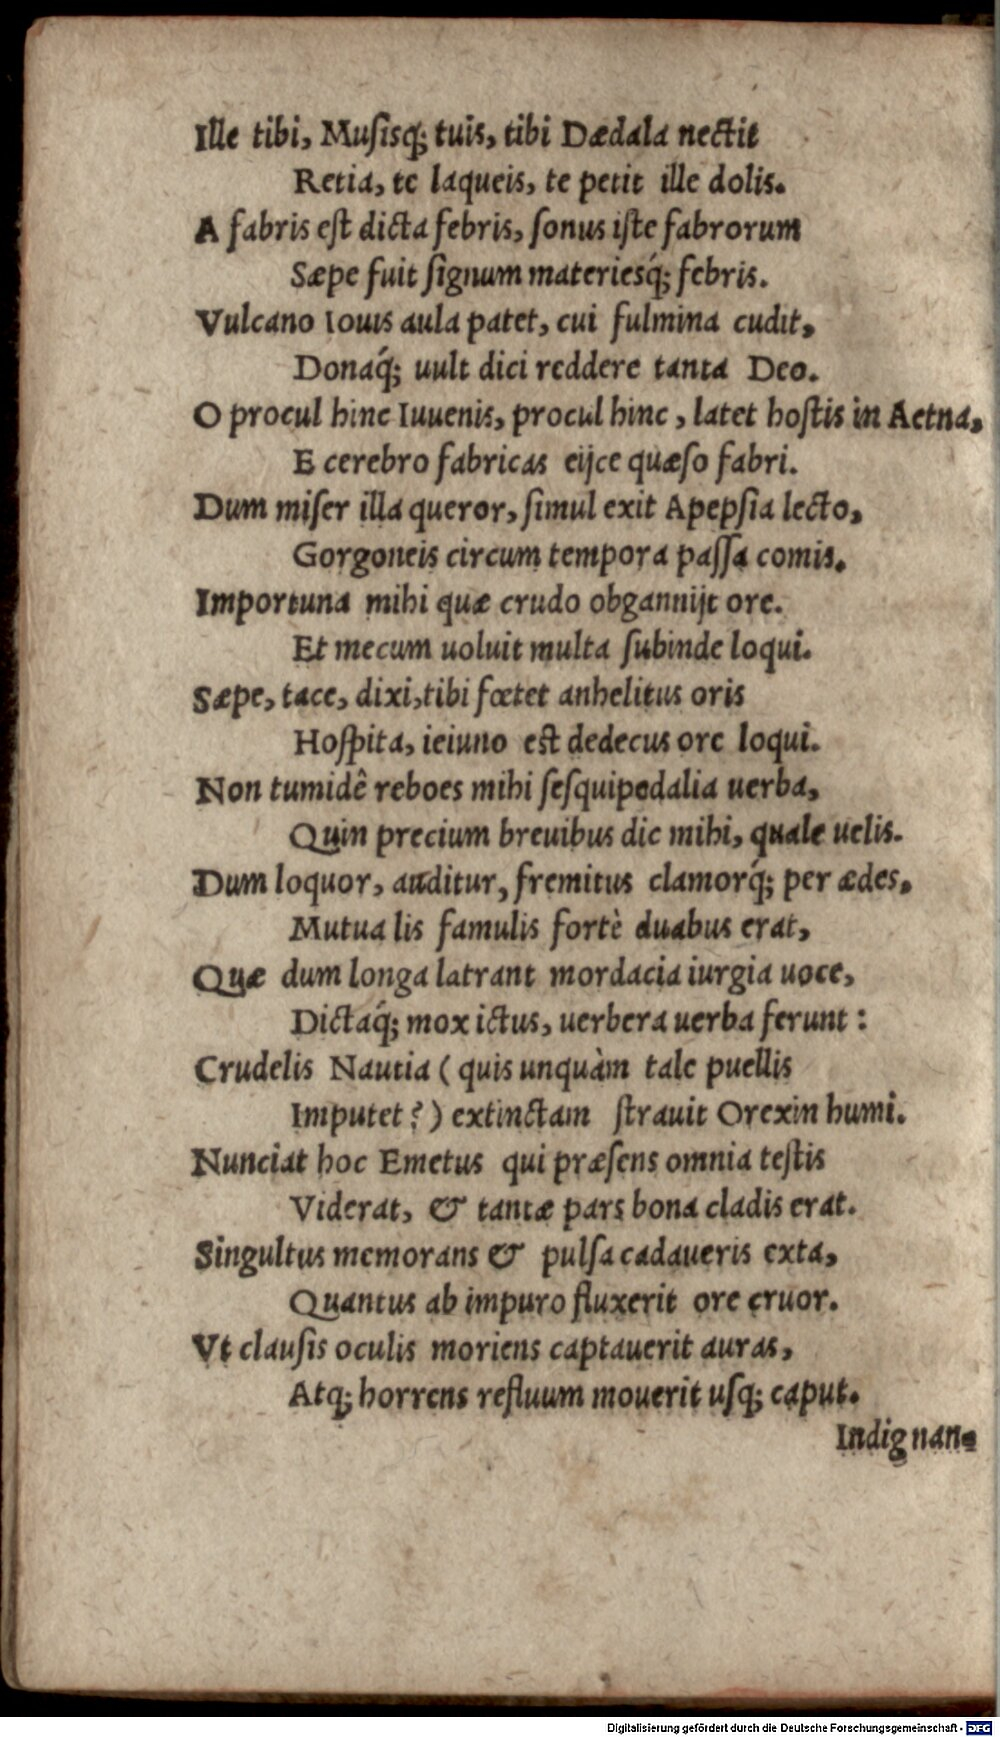 Ille tibi, Musisq́; tuis, tibi Dædala nectit
Retia, te laqueis, te petit ille dolis.
A fabris est dicta febris, sonus iste fabrorum
Sæpe fuit signum materiesq́; febris.
Vulcano Iouis aula patet, cui fulmina cudit,
Donaq́; uult dici reddere tanta Deo.
O procul hinc Iuuenis, procul hinc, latet hostis in Aetna,
E cerebro fabricas eijce quæso fabri.
Dum miser illa queror, simul exit Apepsia lecto,
Gorgoneis circum tempora passa comis.
Importuna mihi quæ crudo obgannijt ore.
Et mecum uoluit multa subinde loqui.
Sæpe, tace, dixi, tibi fœtet anhelitus oris
Hospita, ieiuno est dedecus ore loqui.
Non tumidê reboes mihi sesquipedalia uerba,
Quin precium breuibus dic mihi, quale uelis.
Dum loquor, auditur, fremitus clamorq́; per ædes,
Mutua lis famulis fortè duabus erat,
Quæ dum longa latrant mordacia iurgia uoce,
Dictaq́; mox ictus, uerbera uerba ferunt:
Crudelis Nautia (quis unquàm tale puellis
Imputet?) extinctam strauit Orexin humi.
Nunciat hoc Emetus qui præsens omnia testis
Viderat, & tantæ pars bona cladis erat.
Singultus memorans & pulsa cadaueris exta,
Quantus ab impuro fluxerit ore cruor.
Vt clausis oculis moriens captauerit auras,
Atq; horrens refluum mouerit usq; caput.
Indignan-
Digitalisierung gefördert durch die Deutsche Forschungsgemeinschaft - DFG